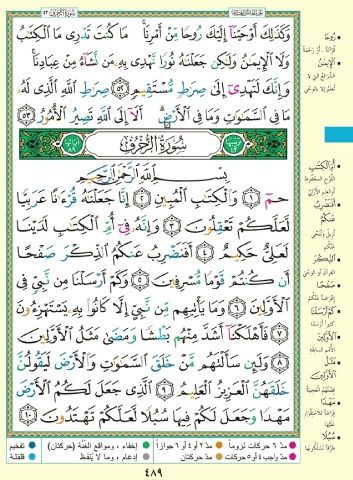 سُورَةُ الزُّخْرُفِ ٤٣
وَكَذَٰلِكَ أَوْحَيْنَآ إِلَيْكَ رُوحًا مِّنْ أَمْرِنَا ۚ مَا كُنتَ تَدْرِى مَا ٱلْكِتَٰبُ
وَلَا ٱلْإِيمَٰنُ وَلَٰكِن جَعَلْنَٰهُ نُورًا نَّهْدِى بِهِۦ مَن نَّشَآءُ مِنْ عِبَادِنَا ۚ
وَإِنَّكَ لَتَهْدِىٓ إِلَىٰ صِرَٰطٍ مُّسْتَقِيمٍ ٥٢ صِرَٰطِ ٱللَّهِ ٱلَّذِى لَهُۥ
مَا فِى ٱلسَّمَٰوَٰتِ وَمَا فِى ٱلْأَرْضِ ۗ أَلَآ إِلَى ٱللَّهِ تَصِيرُ ٱلْأُمُورُ ٥٣
سُورَةُ الزُّخْرُفِ
بِسْمِ ٱللَّهِ ٱلرَّحْمَٰنِ ٱلرَّحِيمِ
حمٓ ١ وَٱلْكِتَٰبِ ٱلْمُبِينِ ٢ إِنَّا جَعَلْنَٰهُ قُرْءَٰنًا عَرَبِيًّا
لَّعَلَّكُمْ تَعْقِلُونَ ٣ وَإِنَّهُۥ فِىٓ أُمِّ ٱلْكِتَٰبِ لَدَيْنَا
لَعَلِىٌّ حَكِيمٌ ٤ أَفَنَضْرِبُ عَنكُمُ ٱلذِّكْرَ صَفْحًا
أَن كُنتُمْ قَوْمًا مُّسْرِفِينَ ٥ وَكَمْ أَرْسَلْنَا مِن نَّبِىٍّ فِى
ٱلْأَوَّلِينَ ٦ وَمَا يَأْتِيهِم مِّن نَّبِىٍّ إِلَّا كَانُوا۟ بِهِۦ يَسْتَهْزِءُونَ
٧ فَأَهْلَكْنَآ أَشَدَّ مِنْهُم بَطْشًا وَمَضَىٰ مَثَلُ ٱلْأَوَّلِينَ
٨ وَلَئِن سَأَلْتَهُم مَّنْ خَلَقَ ٱلسَّمَٰوَٰتِ وَٱلْأَرْضَ لَيَقُولُنَّ
خَلَقَهُنَّ ٱلْعَزِيزُ ٱلْعَلِيمُ ٩ ٱلَّذِى جَعَلَ لَكُمُ ٱلْأَرْضَ
مَهْدًا وَجَعَلَ لَكُمْ فِيهَا سُبُلًا لَّعَلَّكُمْ تَهْتَدُونَ ١٠
رُوحًا
الْإِيمَٰنُ
أُمِّ الْكِتَٰبِ
أَفَنَضْرِبُ
عَنكُمُ
الذِّكْرَ
صَفْحًا
كَمْ أَرْسَلْنَا
الْأَوَّلِينَ
مَثَلُ
الْأَوَّلِينَ
مَهْدًا
سُبُلًا
مدّ ٦ حركات لزوماً مدّ ٢ أو ٤ أو ٦ جوازاً إخفاء، ومواقع الغنّة (حركتان) تفخيم
مدّ واجب ٤ أو ٥ حركات مدّ حركتان إدغام، وما لا يُلفظ قلقلة
٤٨٩